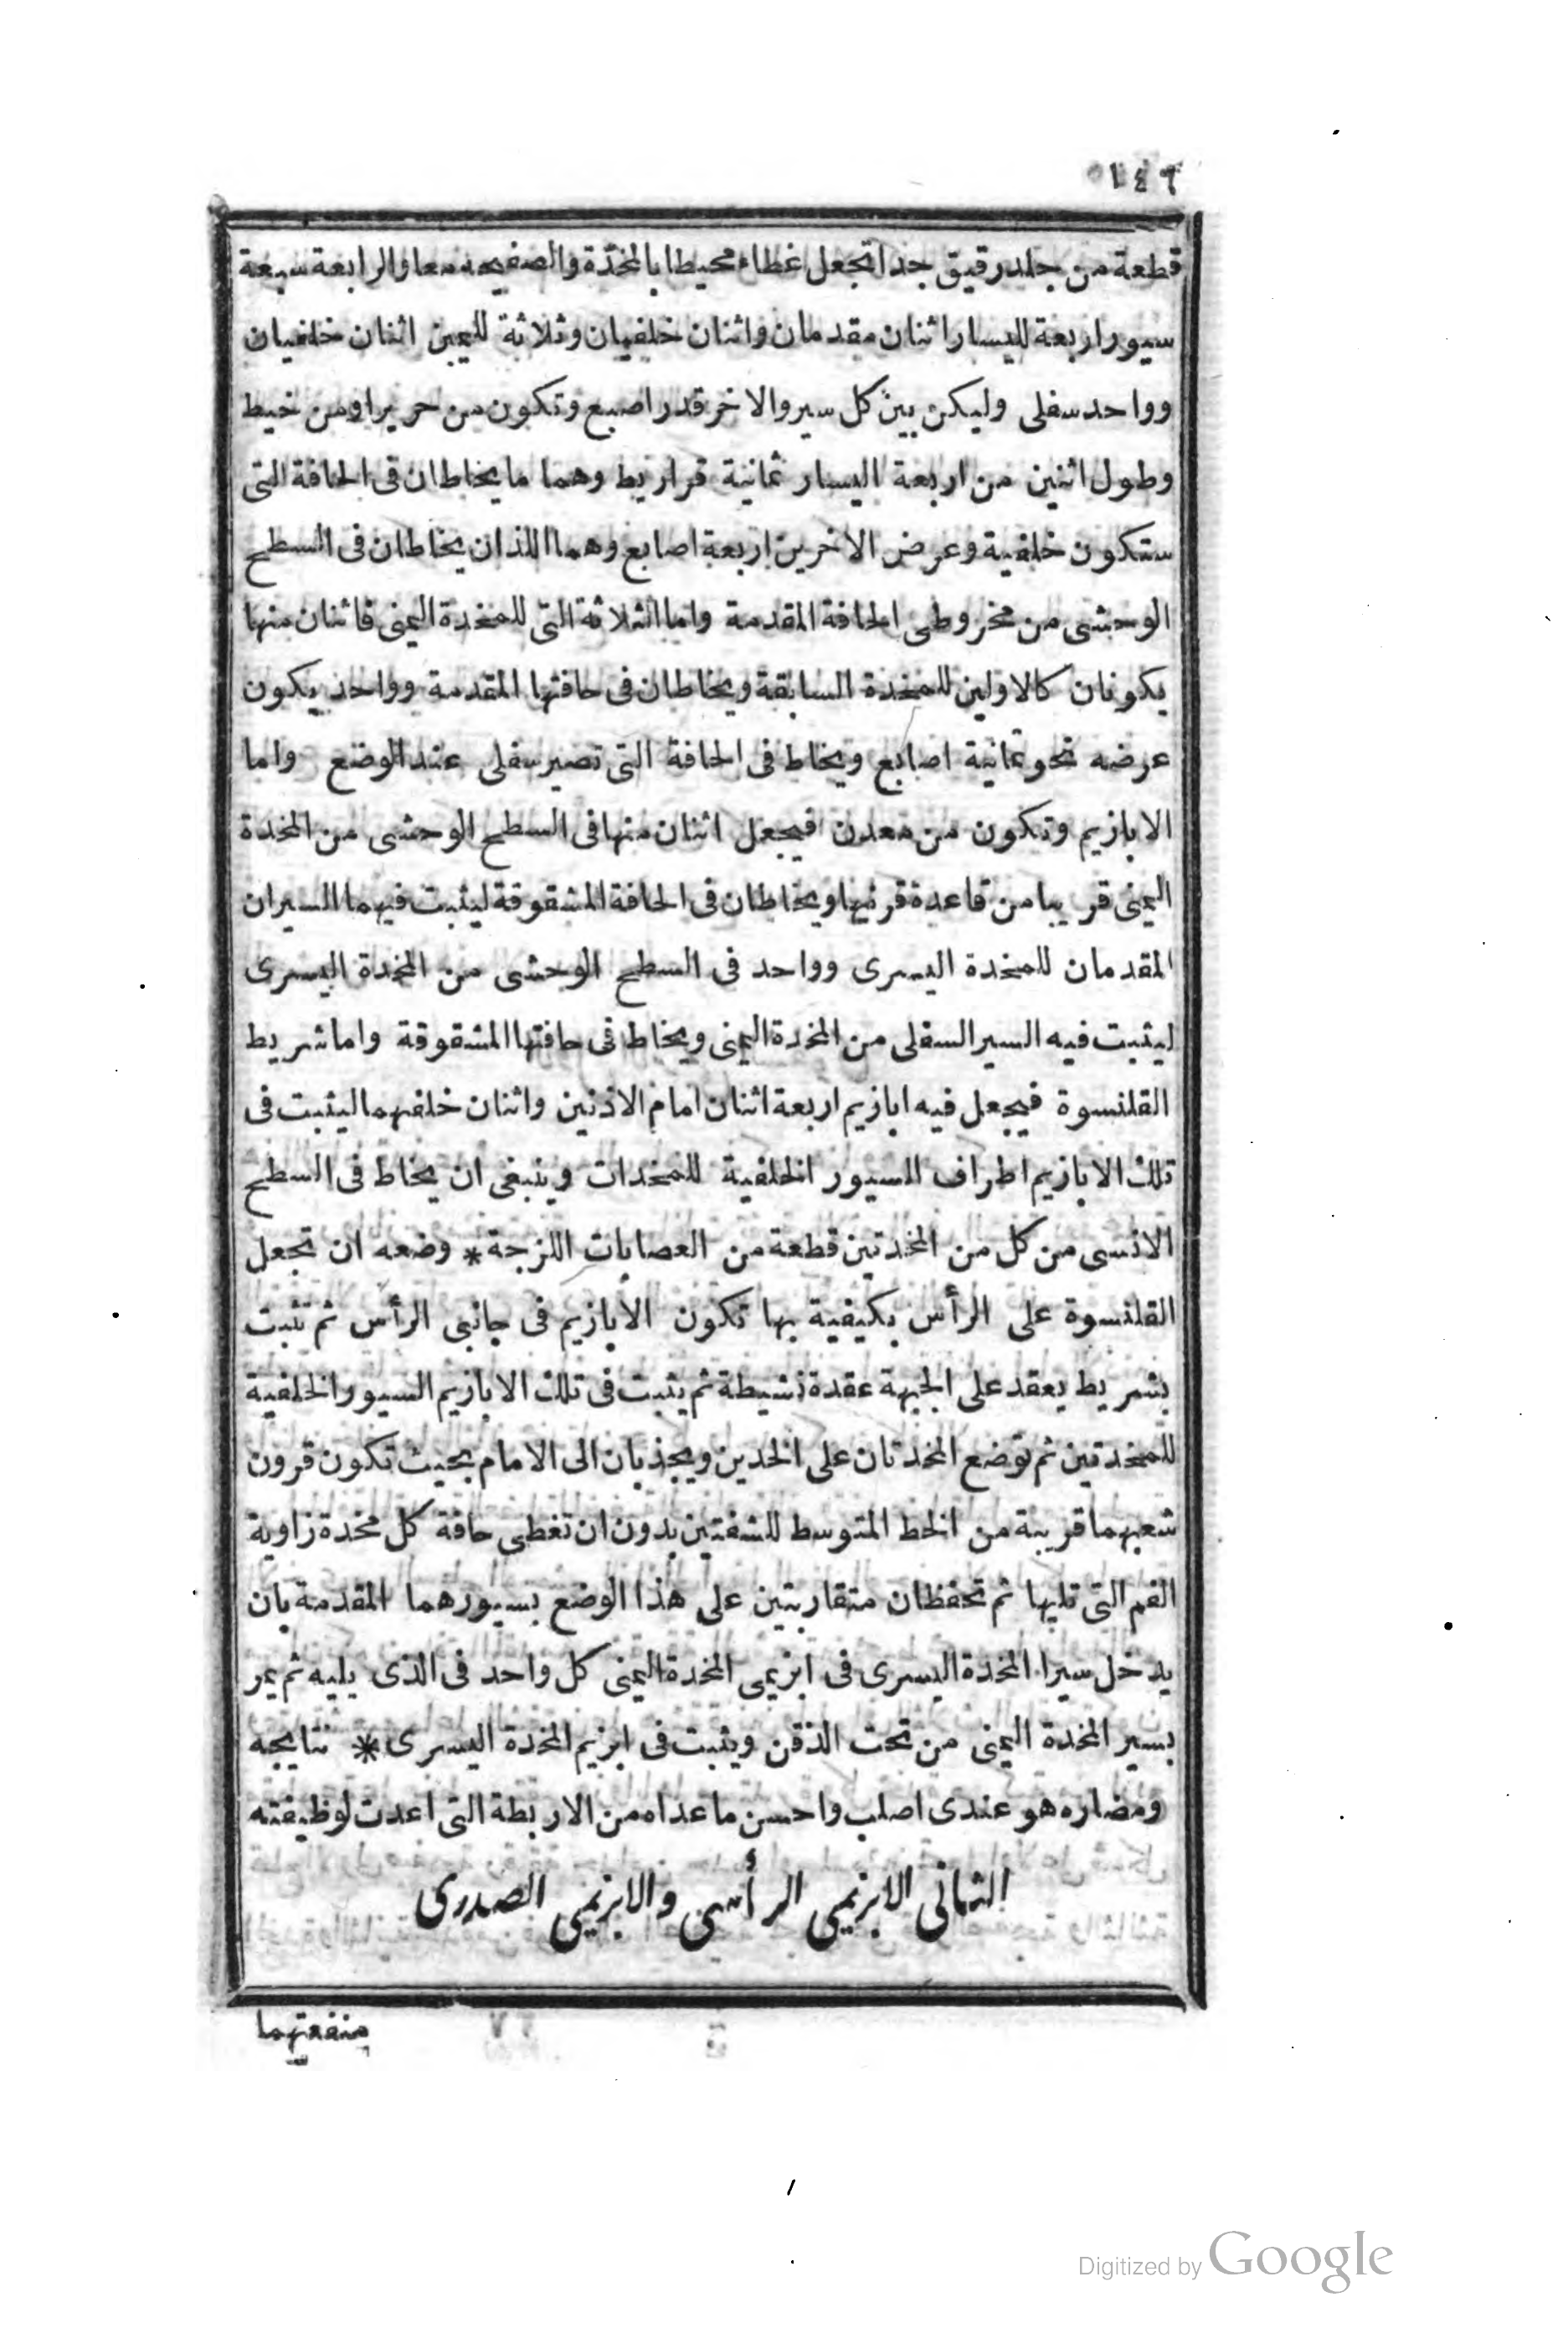 ١٤٦
قطعة من جلد رقيق جدا تجعل غطاء محيطا بالمخدّة والصفيحه معا والرابعة سبعة
سيور اربعة لليسار اثنان مقدمان واثنان خلفيان وثلاثة لليمين اثنان خلفيان
وواحد سفلى وليكن بين كل سير والاخر قدر اصبع وتكون من حرير او من خيط
وطول اثنين من اربعة اليسار ثمانية قراريط وهما ما يخاطان فى الحافة التى
ستكون خلفية وعرض الاخرين اربعة اصابع وهما اللذان يخاطان فى السطح
الوحشى من مخروطى الحافة المقدمة واما الثلاثة التى للمخدة اليمنى فاثنان منها
يكونان كالاولين للمخدة السابقة ويخاطان فى حافتها المقدمة وواحد يكون
عرضه نحو ثمانية اصابع ويخاط فى الحافة التى تصير سفلى عند الوضع واما
الابازيم وتكون من معدن فيجعل اثنان منها فى السطح الوحشى من المخدة
اليمنى قريبا من قاعدة قرنيها ويخاطان فى الحافة المشقوقة ليثبت فيهما السيران
المقدمان للمخدة اليسرى وواحد فى السطح الوحشى من المخدة اليسرى
ليثبت فيه السير السفلى من المخدة اليمنى ويخاط فى حافتها المشقوقة واما شريط
القلنسوة فيجعل فيه ابازيم اربعة اثنان امام الاذنين واثنان خلفهما ليثبت فى
تلك الابازيم اطراف السيور الخلفية للمخدات وينبغى ان يخاط فى السطح
الانسى من كل من المخدتين قطعة من العصابات اللزجة * وضعه ان تجعل
القلنسوة على الرأس بكيفية بها تكون الابازيم فى جانبى الرأس ثم تثبت
بشريط يعقد على الجبهة عقدة نشيطة ثم يثبت فى تلك الابازيم السيور الخلفية
للمخدتين ثم توضع المخدتان على الخدين ويجذبان الى الامام بحيث تكون قرون
شعبهما قريبة من الخط المتوسط للشفتين بدون ان تغطى حافة كل مخدة زاوية
الفم التى تليها ثم تحفظان متقاربتين على هذا الوضع بسيورهما المقدمة بان
يدخل سيرا المخدة اليسرى فى ابزيمى المخدة اليمنى كل واحد فى الذى يليه ثم يمر
بسير المخدة اليمنى من تحت الذقن ويثبت فى ابزيم المخدة اليسرى * نتايجه
ومضاره هو عندى اصلب واحسن ما عداه من الاربطة التى اعدت لوظيفته
الثمانى الابزيمى الرأسى والابزيمى الصدرى
منفعتهما
Digitized by Google